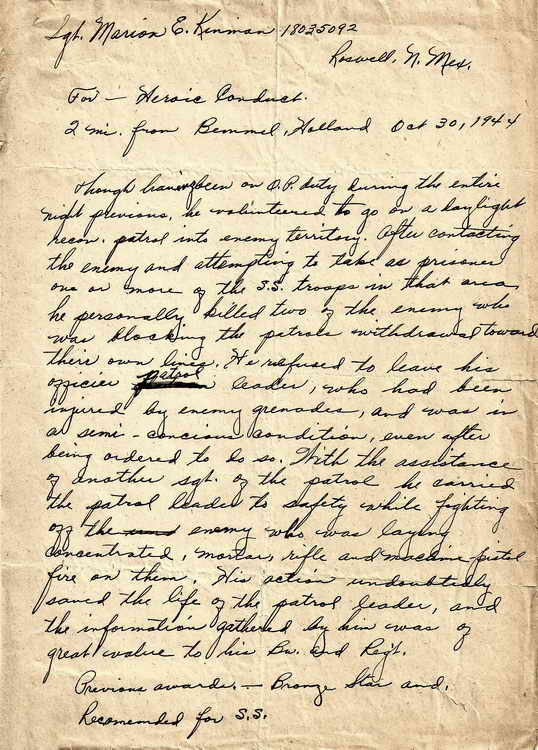 Sgt. Marion E. Kinman 18035092
Roswell, N. Mex.
For — Heroic Conduct.
2 mi. from Bemmel, Holland Oct 30, 1944
Though having been on O.P. duty during the entire
night previous, he volunteered to go on a daylight
recon. patrol into enemy territory. After contacting
the enemy and attempting to take as prisoner
one or more of the S.S. troops in that area,
he personally killed two of the enemy who
was blocking the patrols withdrawal toward
there own lines. He refused to leave his
officier patrol leader, who had been
injured by enemy grenades, and was in
a semi-concious condition, even after
being ordered to do so. With the assistance
of another sgt. of the patrol he carried
the patrol leader to safety while fighting
off the enemy who was laying
concentrated, mortar, rifle and machine-pistol
fire on them. His action undoubtedly
saved the life of the patrol leader, and
the information gathered by him was of
great value to his Bn. and Regt.
Previous awards. — Bronze Star and.
Recomended for S.S.